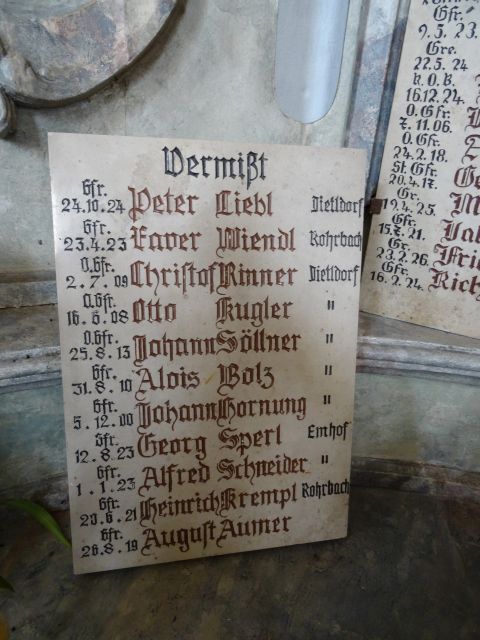 Vermißt
Gfr.
24.10.24 Peter Liebl Dietldorf
Gfr.
23.4.23 Xaver Wiendl Rohrbach
O.Gfr.
2.7.09 Christof Rinner Dietldorf
O.Gfr.
16.6.08 Otto Kugler "
O.Gfr.
25.8.13 Johann Söllner "
Gfr.
31.8.10 Alois Bolz "
Gfr.
5.12.00 Johann Hornung "
Gfr.
12.8.23 Georg Sperl Emhof
Gfr.
1.1.23 Alfred Schneider "
Gfr.
23.6.21 Heinrich Krempl Rohrbach
Gfr.
26.8.19 August Aumer
Gfr.
9.5.23.
Gre.
22.5.24
R.O.B.
16.12.24.
O.Gfr.
7.11.06.
O.Gfr.
24.2.18.
St.Gfr.
20.4.17.
Gr.
19.4.25.
Gfr.
15.7.21.
Gr.
23.2.26.
Gfr.
16.2.24.